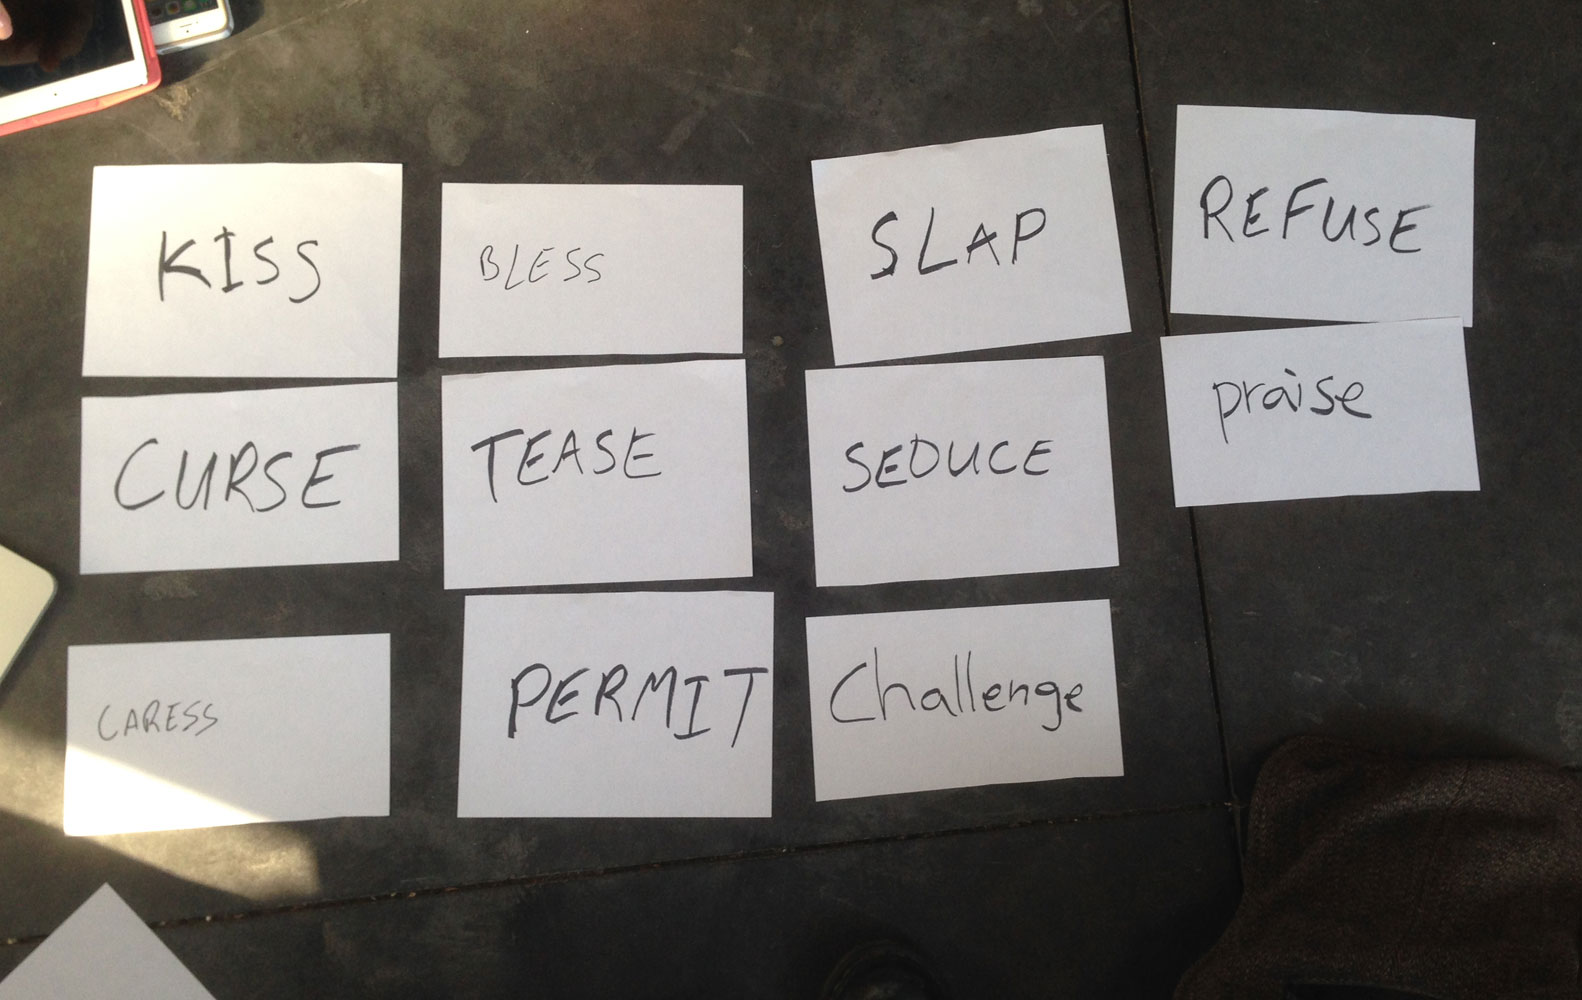 KISS
BLESS
SLAP
REFUSE
CURSE
TEASE
SEDUCE
praise
CARESS
PERMIT
Challenge